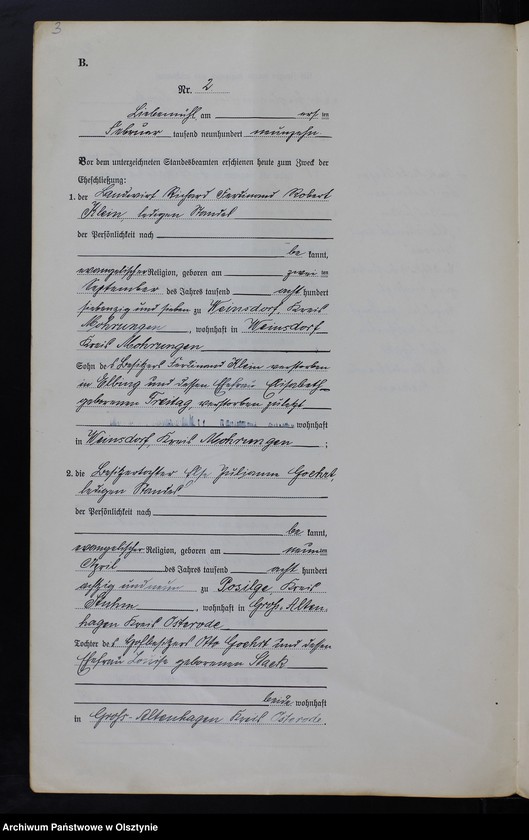 3
B.
Nr. 2
Liebemühl am ersten
Februar tausend neunhundert neunzehn
Vor dem unterzeichneten Standesbeamten erschienen heute zum Zweck der
Eheschließung:
1. der Landwirt Richard Ferdinand Robert
Klein, ledigen Standes
der Persönlichkeit nach
be kannt,
evangelischer Religion, geboren am zweiten
September des Jahres tausend acht hundert
siebenzig und sieben zu Weinsdorf, Kreis
Mohrungen, wohnhaft in Weinsdorf
Kreis Mohrungen
Sohn des Besitzers Ferdinand Klein verstorben
in Elbing und dessen Ehefrau Elisabeth
geborenen Freitag, verstorben zuletzt
wohnhaft
in Weinsdorf, Kreis Mohrungen ;
2. die Besitzertochter Else Julianne Goehrt,
ledigen Standes
der Persönlichkeit nach
be kannt,
evangelischer Religion, geboren am neunten
April des Jahres tausend acht hundert
achtzig und neun zu Posilge, Kreis
Stuhm, wohnhaft in Groß-Alten-
hagen Kreis Osterode
Tochter des Hofbesitzers Otto Goehrt und dessen
Ehefrau Louise geborenen Staek
beide wohnhaft
in Groß-Altenhagen Kreis Osterode.
Archiwum Państwowe w Olsztynie